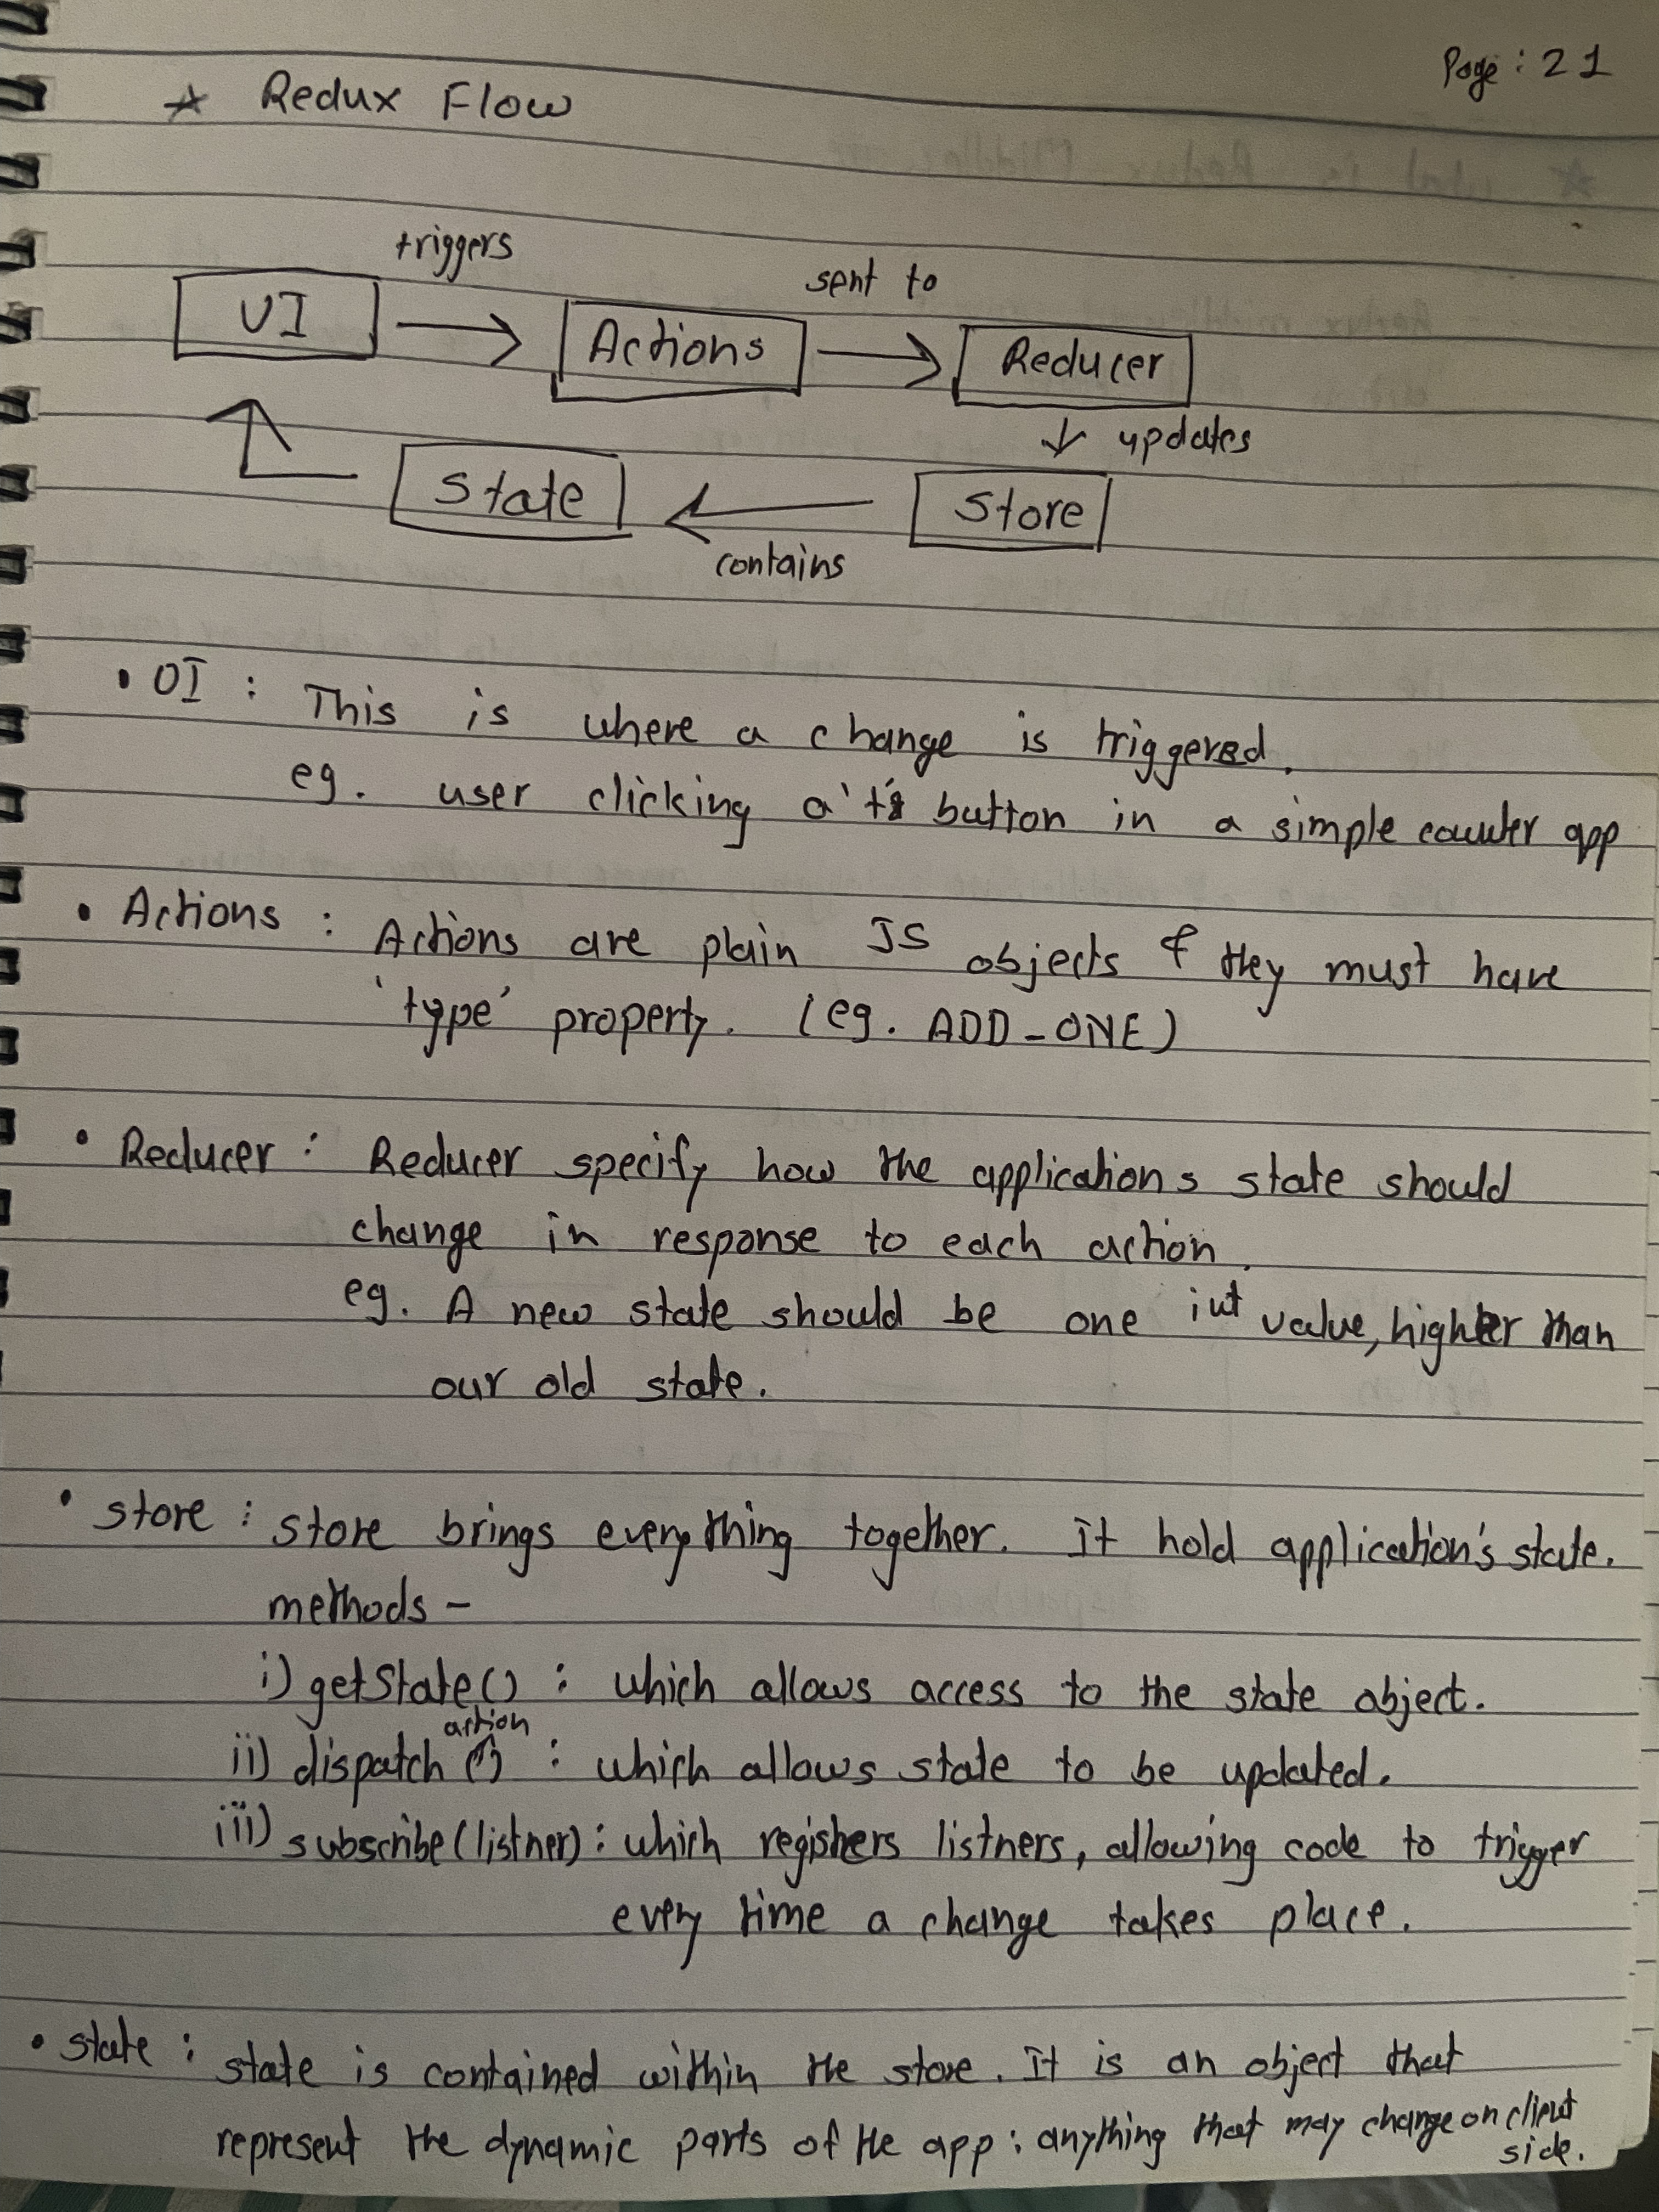 Page : 21
★ Redux Flow
triggers
sent to
UI
Actions
Reducer
updates
State
Store
contains
• UI : This is where a change is triggered.
eg. user clicking a '+' button in a simple counter app
• Actions : Actions are plain JS objects & they must have
'type' property. (eg. ADD_ONE)
• Reducer : Reducer specify how the applications state should
change in response to each action.
eg. A new state should be one int value, higher than
our old state.
• store : store brings everything together. It hold application's state.
methods –
i) getState() : which allows access to the state object.
action
ii) dispatch () : which allows state to be updated.
iii) subscribe(listner) : which registers listners, allowing code to trigger
every time a change takes place.
• state : state is contained within the store. It is an object that
represent the dynamic parts of the app : anything that may change on client
side.